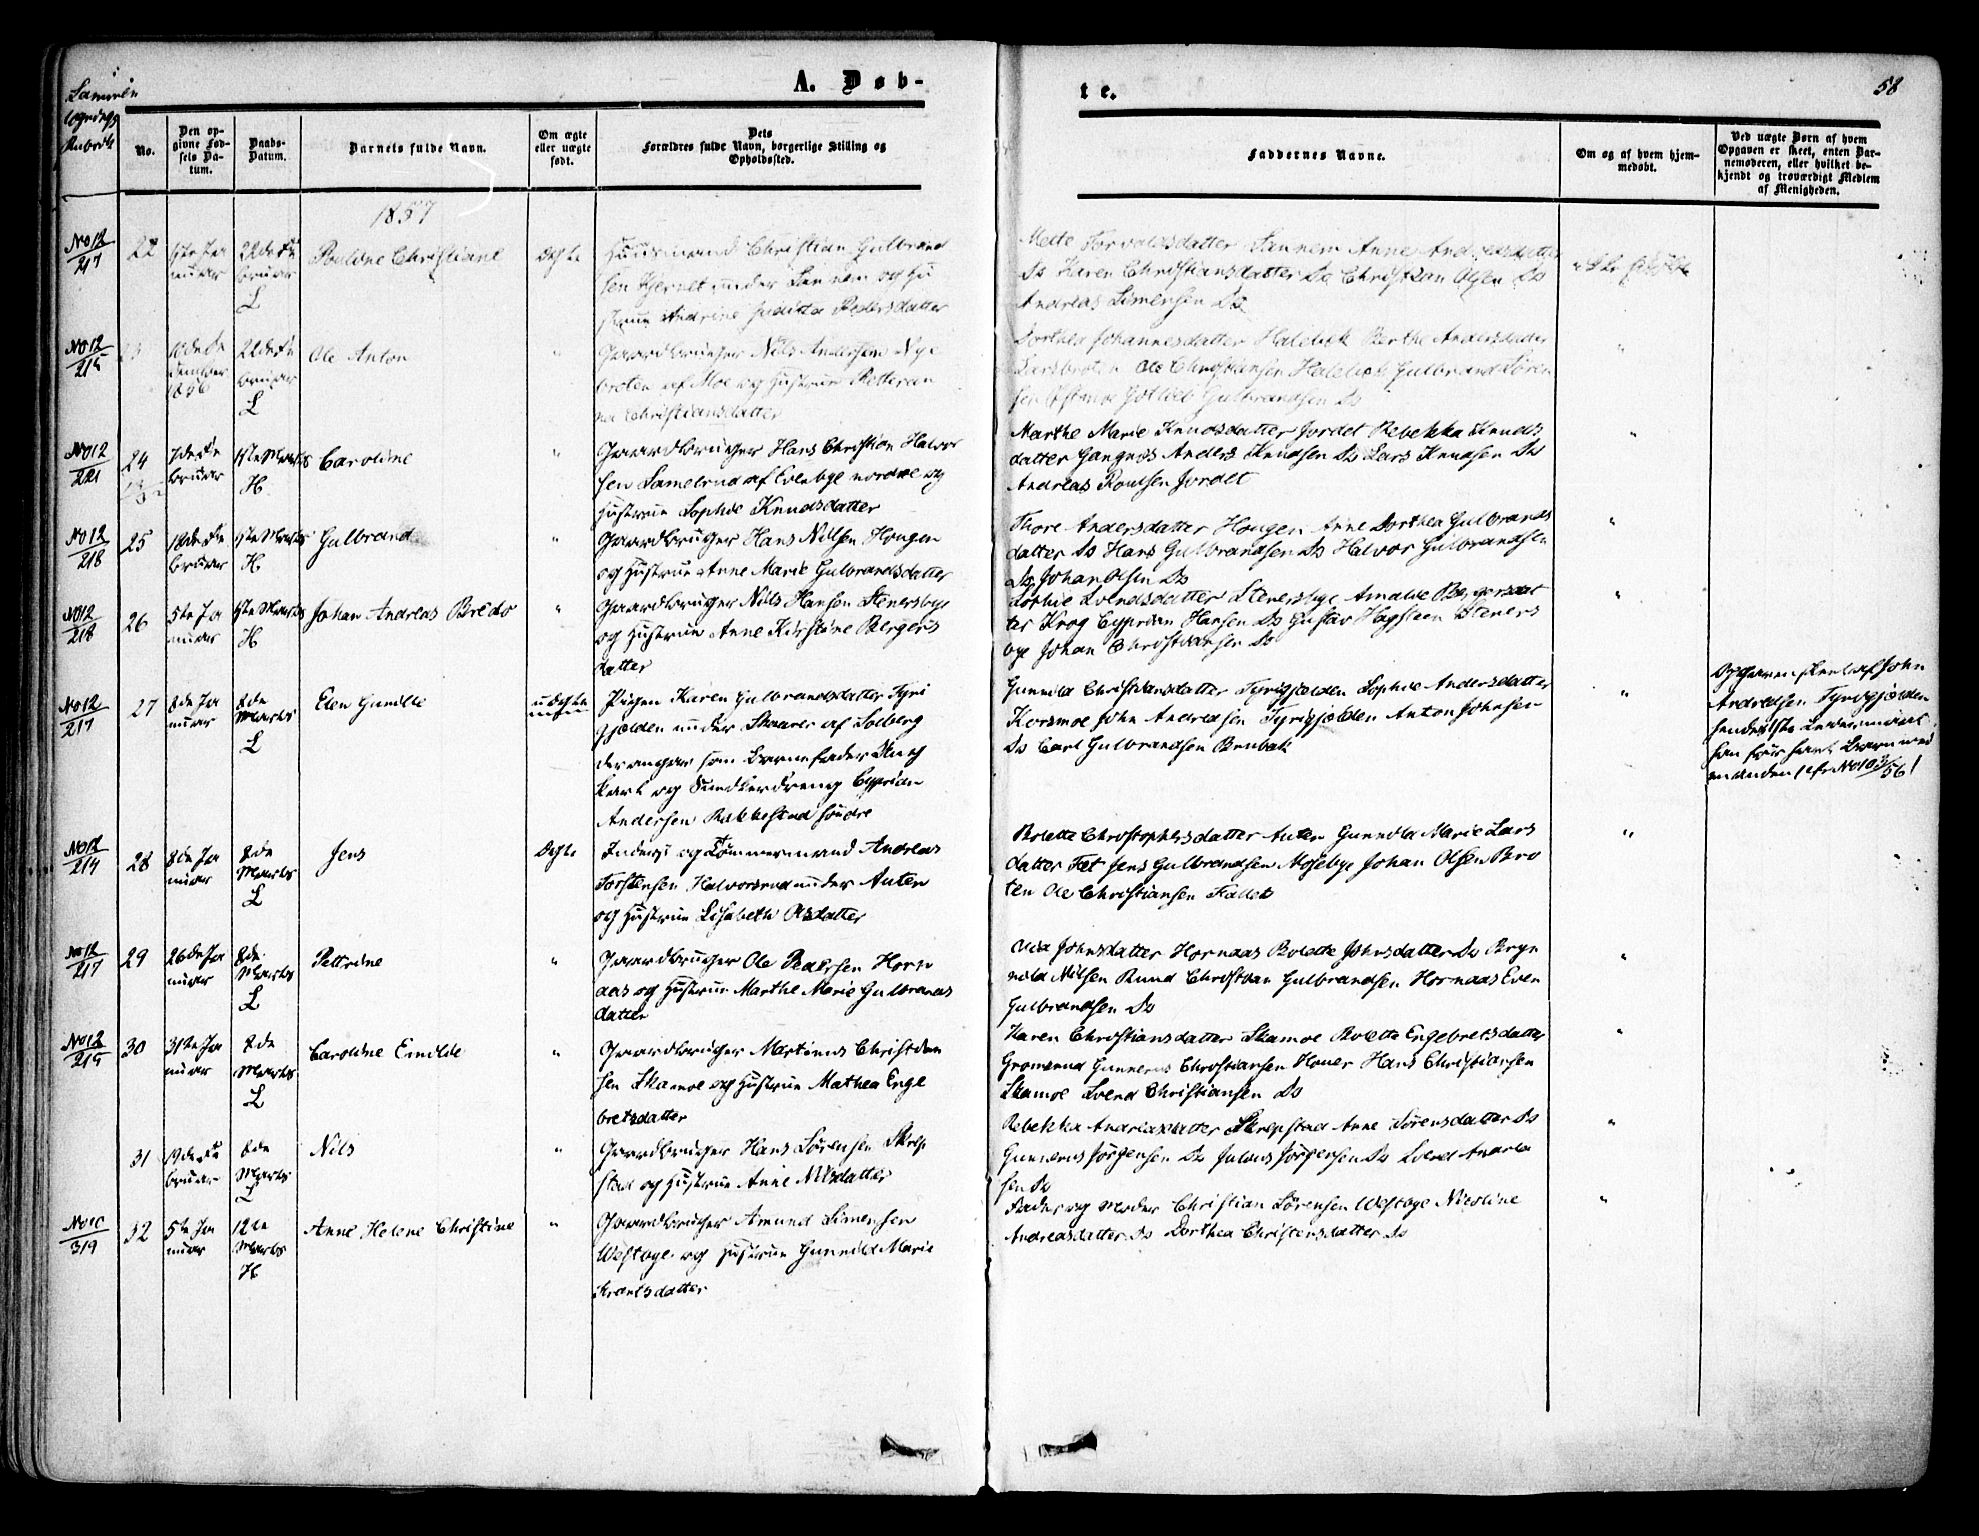 A. Døb-
te.
58
No.
Den op-
givne Fød-
sels Da-
tum.
Daabs-
Datum.
Barnets fulde Navn.
Om ægte
eller uægte
født.
Dets
Forældres fulde Navn, borgerlige Stilling og
Opholdssted.
Faddernes Navne.
Om og af hvem hjem-
medøbt.
Ved uægte Børn af hvem
Opgaven er skeet, enten Bar-
nemoderen, eller hvilket be-
kjendt og troværdigt Medlem
af Menigheden.
1857
No 12
217
22
22de Fe
bruar
L
Christiane
Ægte
Huusmand Christian Gulbrand
sen under Sannem og Hu
strue Andrine Pedersdatter
Mette Sannem Anne Andreasdatter
Do Karen Christiansdatter Do Christian Olsen Do
Andreas Simensen Do
No 12
215
23
10de De
cember
1856
22de Fe
bruar
L
Ole Anton
"
Gaardbruger Nils Andersen Nye
broten af Moe og Hustrue
Christiansdatter
Dorthea Johannesdatter Berthe Andersdatter
Ole Christiansen Gulbrand Søren
sen Gulbrandsen Do
"
No 12
221
24
7de Fe
bruar
1ste Marts
H
Caroline
"
Gaardbruger Hans Christian Halvor
sen af nordre og
Hustrue Sophie Knudsdatter
Marthe Marie Knudsdatter Jordet Rebekka Knuds
datter Gangnæs Anders Knudsen Do Lars Knudsen Do
Andreas Jordet
"
No 12
218
25
18de Fe
bruar
1ste Marts
H
Gulbrand
"
Gaardbruger Hans Nilsen Hougen
og Hustrue Anne Marie Gulbrandsdatter
Thore Andersdatter Hougen Anne Dorthea Gulbrands
datter Do Hans Gulbrandsen Do Halvor Gulbrandsen
Do Johan Olsen Do
"
No 12
218
26
5te Ja
nuar
1ste Marts
H
Johan Andreas Bredo
"
Gaardbruger Nils Hansen Stenersbye
og Hustrue Anne Kirstine Bergers
datter
Sophie Svendsdatter Stenersbye Amalie Bergersdat
ter Krog Cyprian Hansen Do Gustav Hagsteen Steners
bye Johan Christiansen Do
"
No 12
217
27
8de Ja
nuar
8de
Marts
L
Elen Gunilde
uægte
Pigen Karen Gulbrandsdatter Tyri
gjølden under Skaarer af Solberg
der angav som Barnefader Ung
karl og Cyprian
Andersen Rakkestad søndre
Gunnild Christiansdatter Tyrigjølden Sophie Andersdatter
Korsmoe John Andresen Tyrigjølden Anton Johnsen
Do Carl Gulbrandsen Brubak
"
Opgaven skeet af John
Andreasen Tyrigjølden
hendes 1ste Leiermaal
No 12
214
28
8de Ja
nuar
8de
Marts
L
Jens
Ægte
Inderst og Tømmermand Andreas
Torstensen Halvorsrud under Auten
og Hustrue Lisabeth Olsdatter
Bolette Christophersdatter Auten Gunnild Marie Lars
datter Fæt Jens Gulbrandsen Mosebye Johan Olsen Bro
ten Ole Christiansen Fallet
"
No 12
217
29
26de Ja
nuar
8de
Marts
L
Pettrine
"
Gaardbruger Ole Pedersen Horn
aas og Hustrue Marthe Marie Gulbrands
datter
Johnsdatter Hornaas Bolette Johnsdatter Do Bryn
nild Nilsen Rund Christian Gulbrandsen Hornaas Even
Gulbrandsen Do
"
No 12
215
30
31te Ja
nuar
8de
Marts
L
Caroline Emilde
"
Gaardbruger Martinus Christian
sen Skamoe og Hustrue Mathea Enge
bretsdatter
Karen Christiansdatter Skamoe Bolette Engebretsdatter
Gunnerus Christiansen Hans Christiansen
Skamoe Svend Christiansen Do
"
31
19de Fe
bruar
8de
Marts
L
Nils
"
Gaardbruger Hans Sørensen Skrep
stad og Hustrue Anne Nilsdatter
Rebekka Andreasdatter Skrepstad Anne Sørensdatter Do
Gunnerus Jørgensen Do Julius Jørgensen Do Svend Andrea
sen Do
"
No 10
319
32
5te Ja
nuar
12te
Marts
H
Anne Helene Christine
"
Gaardbruger Amund Simensen
Westbye og Hustrue Gunnild Marie
Fader og Moder Christian Sørensen Westbye Nicoline
Andreasdatter Do Dorthea Christensdatter Do
"